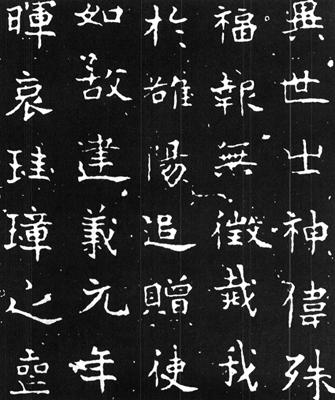 異世士神偉殊
福報無徵我
於雒陽追贈使
如故建義元年
暉哀珪璋之